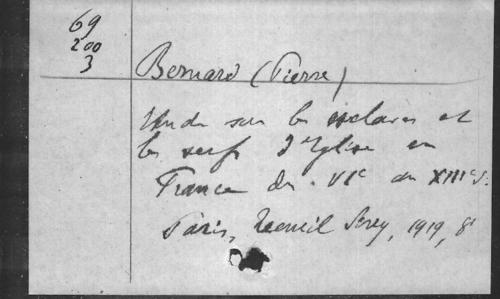 69
200
3
Bernard (Pierre)
Etude sur les esclaves et
les serfs d'Eglise en
France du VIe au XIIIe s.
Paris, Recueil Sirey, 1919, 8°